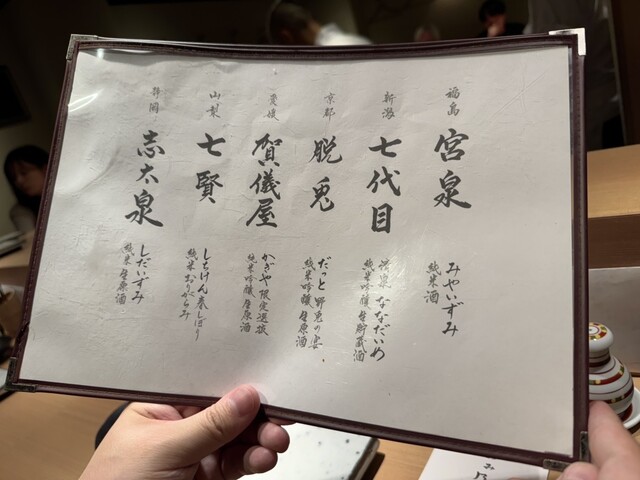 福島
宮泉
みやいずみ
純米酒
新潟
七代目
渓泉 ななだいめ
純米吟醸 生貯蔵酒
京都
脱兎
だっと 野兎の宴
純米吟醸 生原酒
愛媛
賀儀屋
かぎや 限定選抜
純米吟醸 生原酒
山梨
七賢
しちけん 春しぼり
純米 おりがらみ
静岡
志太泉
しだいずみ
純米 生原酒